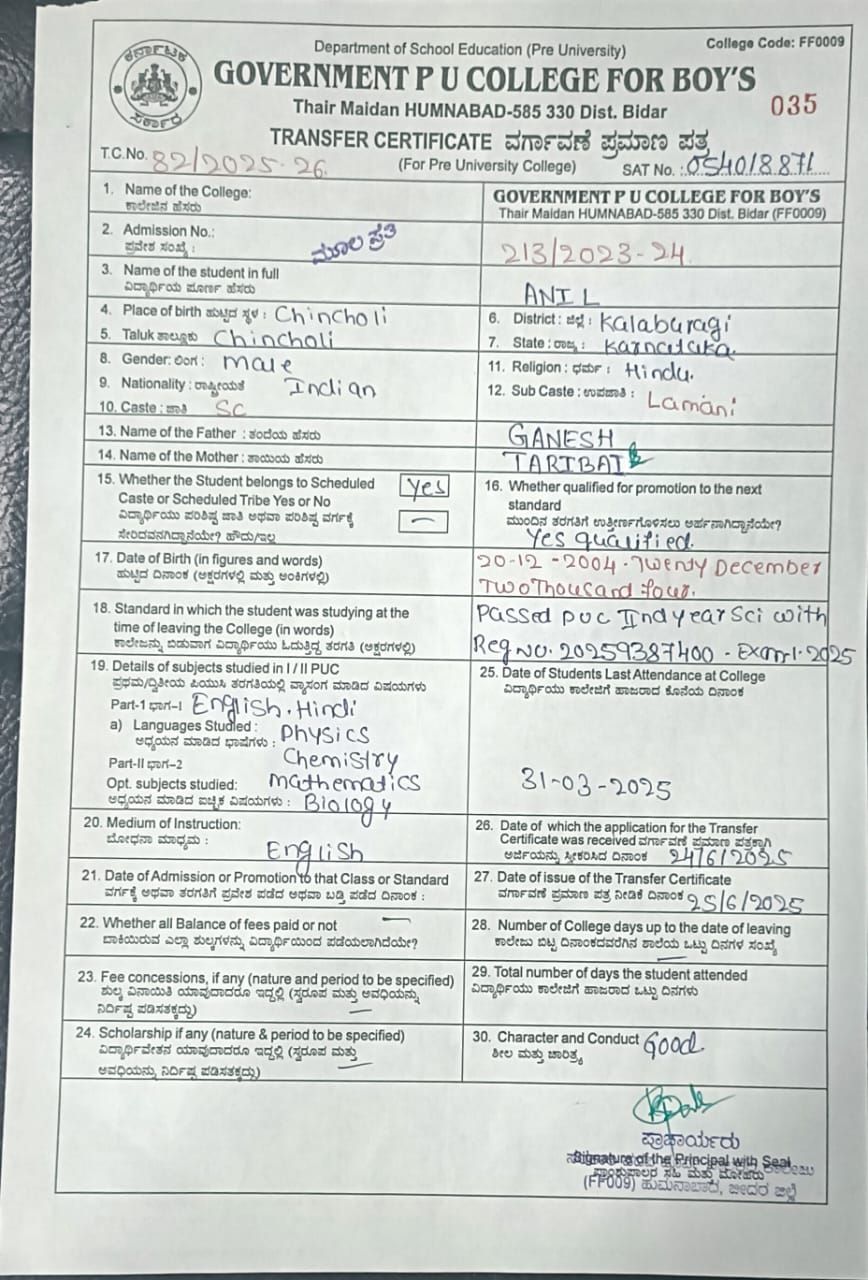 ಕರ್ನಾಟಕ
ಸರ್ಕಾರ
Department of School Education (Pre University)
College Code: FF0009
GOVERNMENT P U COLLEGE FOR BOY'S
Thair Maidan HUMNABAD-585 330 Dist. Bidar
035
TRANSFER CERTIFICATE ವರ್ಗಾವಣೆ ಪ್ರಮಾಣ ಪತ್ರ
T.C.No. 82/2025-26.
(For Pre University College)
SAT No. : 054018871
1. Name of the College:
ಕಾಲೇಜಿನ ಹೆಸರು
GOVERNMENT P U COLLEGE FOR BOY'S
Thair Maidan HUMNABAD-585 330 Dist. Bidar (FF0009)
2. Admission No.:
ಪ್ರವೇಶ ಸಂಖ್ಯೆ :
ಮೂಲ ಪ್ರತಿ
213/2023-24
3. Name of the student in full
ವಿದ್ಯಾರ್ಥಿಯ ಪೂರ್ಣ ಹೆಸರು
ANIL
4. Place of birth ಹುಟ್ಟಿದ ಸ್ಥಳ : Chincholi
5. Taluk ತಾಲ್ಲೂಕು Chincholi
6. District : ಜಿಲ್ಲೆ : Kalaburagi
7. State : ರಾಜ್ಯ : Karnataka.
8. Gender: ಲಿಂಗ : Male
9. Nationality : ರಾಷ್ಟ್ರೀಯತೆ Indian
10. Caste : ಜಾತಿ SC
11. Religion : ಧರ್ಮ : Hindu.
12. Sub Caste : ಉಪಜಾತಿ : Lamani
13. Name of the Father : ತಂದೆಯ ಹೆಸರು GANESH
14. Name of the Mother : ತಾಯಿಯ ಹೆಸರು TARIBAI
15. Whether the Student belongs to Scheduled
Caste or Scheduled Tribe Yes or No
ವಿದ್ಯಾರ್ಥಿಯು ಪರಿಶಿಷ್ಟ ಜಾತಿ ಅಥವಾ ಪರಿಶಿಷ್ಟ ವರ್ಗಕ್ಕೆ
ಸೇರಿದವನಾಗಿದ್ದಾನೆಯೇ? ಹೌದು/ಇಲ್ಲ
Yes
–
16. Whether qualified for promotion to the next
standard
ಮುಂದಿನ ತರಗತಿಗೆ ಉತ್ತೀರ್ಣಗೊಳಿಸಲು ಅರ್ಹನಾಗಿದ್ದಾನೆಯೇ?
Yes qualified.
17. Date of Birth (in figures and words)
ಹುಟ್ಟಿದ ದಿನಾಂಕ (ಅಕ್ಷರಗಳಲ್ಲಿ ಮತ್ತು ಅಂಕಿಗಳಲ್ಲಿ)
20-12-2004. Twenty December
Two Thousand four.
18. Standard in which the student was studying at the
time of leaving the College (in words)
ಕಾಲೇಜನ್ನು ಬಿಡುವಾಗ ವಿದ್ಯಾರ್ಥಿಯು ಓದುತ್ತಿದ್ದ ತರಗತಿ (ಅಕ್ಷರಗಳಲ್ಲಿ)
Passed PUC IInd year Sci with
Reg No. 20259387400 - Exam-1-2025
19. Details of subjects studied in I / II PUC
ಪ್ರಥಮ/ದ್ವಿತೀಯ ಪಿಯುಸಿ ತರಗತಿಯಲ್ಲಿ ವ್ಯಾಸಂಗ ಮಾಡಿದ ವಿಷಯಗಳು
Part-1 ಭಾಗ-I English, Hindi
a) Languages Studied : Physics
ಅಧ್ಯಯನ ಮಾಡಿದ ಭಾಷೆಗಳು :
Part-II ಭಾಗ-2 Chemistry
Opt. subjects studied: Mathematics
ಅಧ್ಯಯನ ಮಾಡಿದ ಐಚ್ಛಿಕ ವಿಷಯಗಳು : Biology
25. Date of Students Last Attendance at College
ವಿದ್ಯಾರ್ಥಿಯು ಕಾಲೇಜಿಗೆ ಹಾಜರಾದ ಕೊನೆಯ ದಿನಾಂಕ
31-03-2025
20. Medium of Instruction:
ಬೋಧನಾ ಮಾಧ್ಯಮ :
English
26. Date of which the application for the Transfer
Certificate was received ವರ್ಗಾವಣೆ ಪ್ರಮಾಣ ಪತ್ರಕ್ಕಾಗಿ
ಅರ್ಜಿಯನ್ನು ಸ್ವೀಕರಿಸಿದ ದಿನಾಂಕ 24/6/2025
21. Date of Admission or Promotion to that Class or Standard
ವರ್ಗಕ್ಕೆ ಅಥವಾ ತರಗತಿಗೆ ಪ್ರವೇಶ ಪಡೆದ ಅಥವಾ ಬಡ್ತಿ ಪಡೆದ ದಿನಾಂಕ :
27. Date of issue of the Transfer Certificate
ವರ್ಗಾವಣೆ ಪ್ರಮಾಣ ಪತ್ರ ನೀಡಿಕೆ ದಿನಾಂಕ 25/6/2025
22. Whether all Balance of fees paid or not –
ಬಾಕಿಯಿರುವ ಎಲ್ಲಾ ಶುಲ್ಕಗಳನ್ನು ವಿದ್ಯಾರ್ಥಿಯಿಂದ ಪಡೆಯಲಾಗಿದೆಯೇ?
28. Number of College days up to the date of leaving
ಕಾಲೇಜು ಬಿಟ್ಟ ದಿನಾಂಕದವರೆಗಿನ ಶಾಲೆಯ ಒಟ್ಟು ದಿನಗಳ ಸಂಖ್ಯೆ
–
23. Fee concessions, if any (nature and period to be specified)
ಶುಲ್ಕ ವಿನಾಯಿತಿ ಯಾವುದಾದರೂ ಇದ್ದಲ್ಲಿ (ಸ್ವರೂಪ ಮತ್ತು ಅವಧಿಯನ್ನು
ನಿರ್ದಿಷ್ಟ ಪಡಿಸತಕ್ಕದ್ದು) –
29. Total number of days the student attended
ವಿದ್ಯಾರ್ಥಿಯು ಕಾಲೇಜಿಗೆ ಹಾಜರಾದ ಒಟ್ಟು ದಿನಗಳು
24. Scholarship if any (nature & period to be specified)
ವಿದ್ಯಾರ್ಥಿವೇತನ ಯಾವುದಾದರೂ ಇದ್ದಲ್ಲಿ (ಸ್ವರೂಪ ಮತ್ತು
ಅವಧಿಯನ್ನು ನಿರ್ದಿಷ್ಟ ಪಡಿಸತಕ್ಕದ್ದು) –
30. Character and Conduct Good
ಶೀಲ ಮತ್ತು ಚಾರಿತ್ರ್ಯ
ಪ್ರಾಚಾರ್ಯರು
Signature of the Principal with Seal
ಪ್ರಾಂಶುಪಾಲರ ಸಹಿ ಮತ್ತು ಮೊಹರು
(FF009) ಹುಮನಾಬಾದ, ಬೀದರ ಜಿಲ್ಲೆ